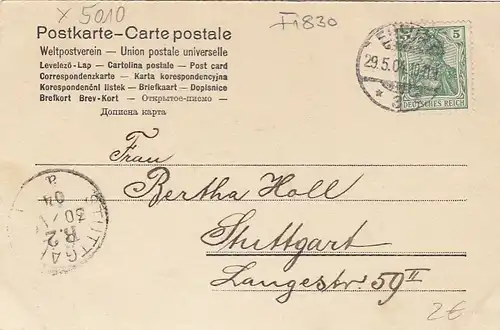 x 5010
830
Postkarte – Carte postale
Weltpostverein — Union postale universelle
Levelező-Lap — Cartolina postale — Post card
Correspondenzkarte — Karta korespondencyjna
Korespondenční listek — Briefkaart — Dopisnice
Brefkort Brev-Kort — Открытое-письмо —
Дописна карта
5
29.5.04
DEUTSCHES REICH
Frau
Bertha Holl
Stuttgart
Langestr. 59 II
STUTTGA
R.2
30/V
04
a
2€